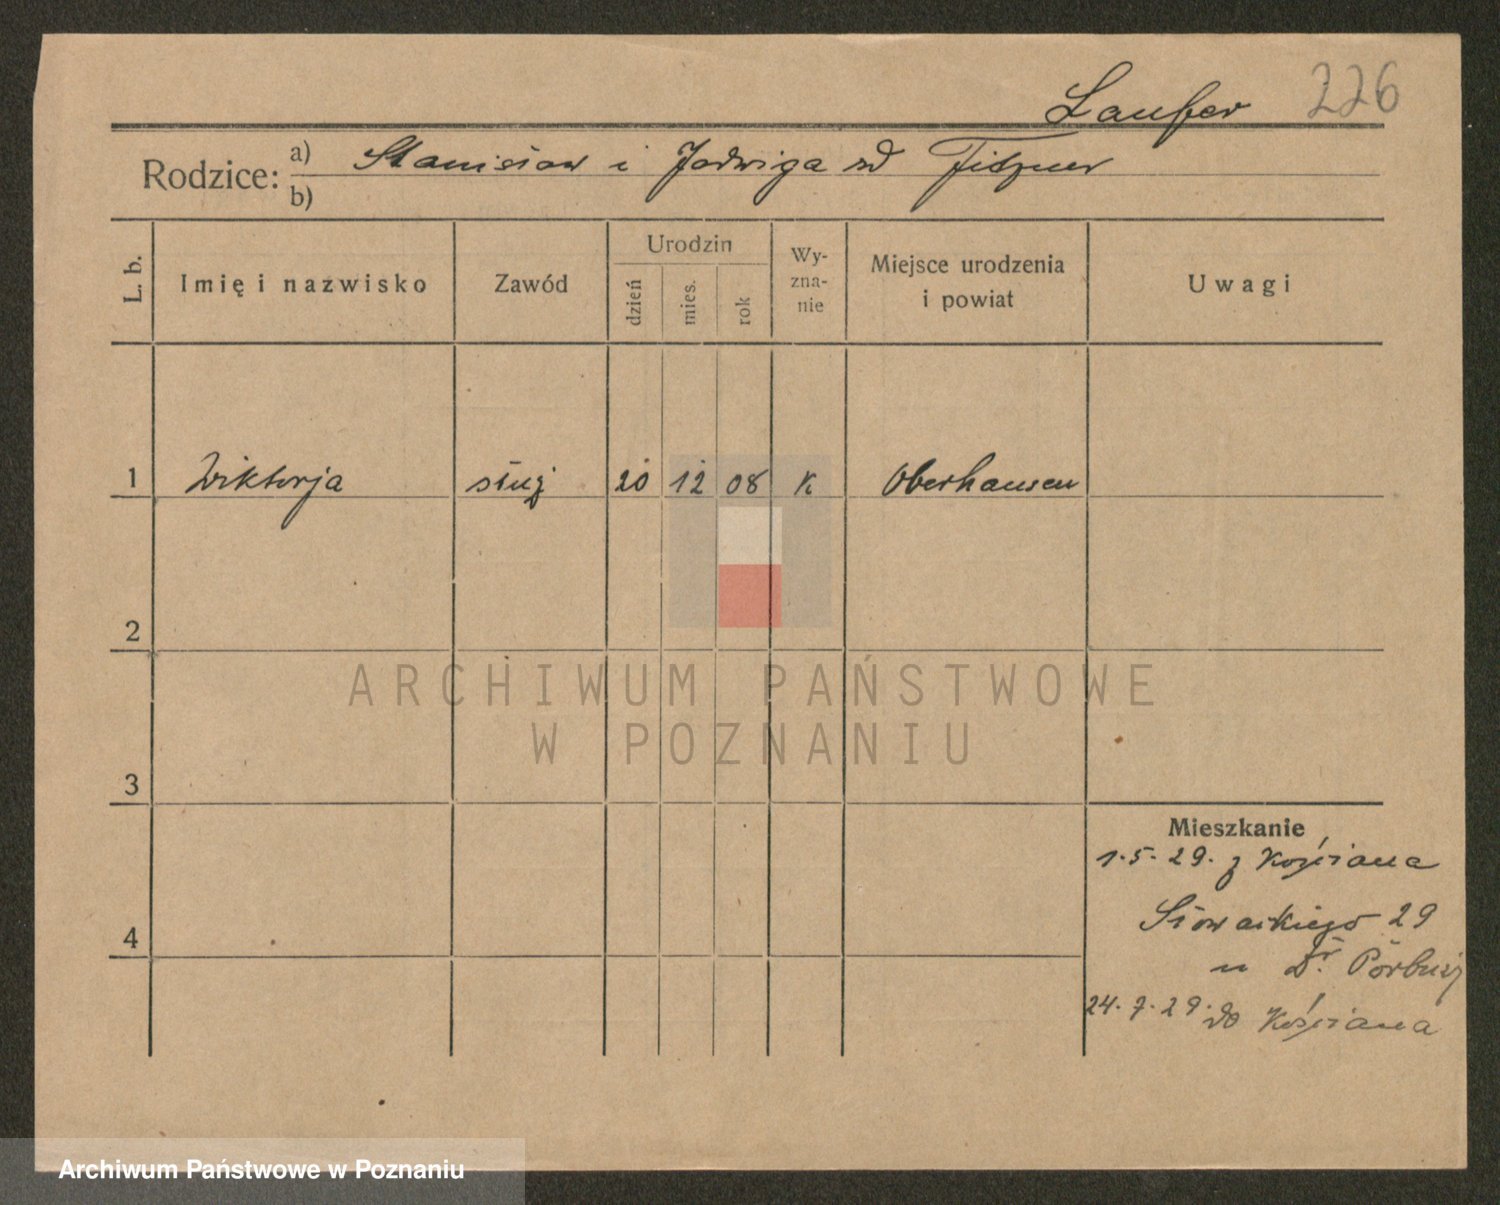 226
Laufer
Rodzice: a) Stanisław i Jadwiga zd Fitzner
b)
L. b.
Imię i nazwisko
Zawód
Urodzin
dzień
mies.
rok
Wy-
zna-
nie
Miejsce urodzenia
i powiat
Uwagi
1 Wiktorja służ 20 12 08 K Oberhausen
2
3
4
Mieszkanie
1.5.29. z Kościana
Słowackiego 29
u Dr.
24.7.29. do Kościana
ARCHIWUM PAŃSTWOWE
W POZNANIU
Archiwum Państwowe w Poznaniu